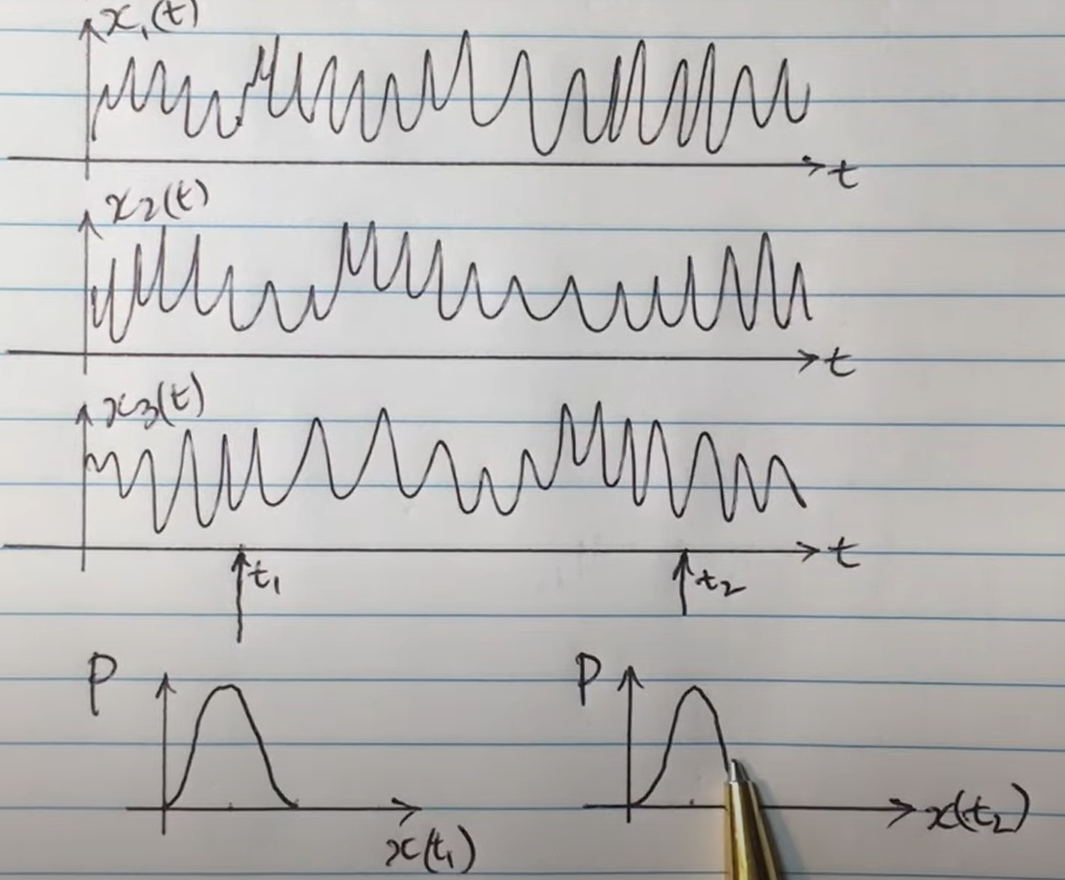 x₁(t)
t
x₂(t)
t
x₃(t)
t
t₁ t₂
P P
x(t₁) x(t₂)